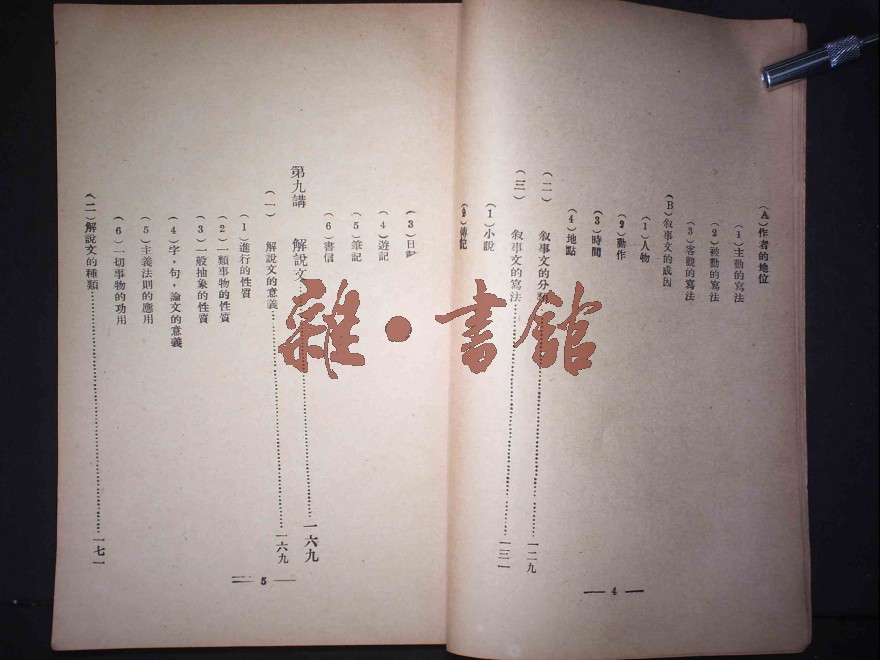 (A)作者的地位
(1)主動的寫法
(2)被動的寫法
(3)客觀的寫法
(B)敘事文的成因
(1)人物
(2)動作
(3)時間
(4)地點
(二) 敘事文的分類……一二九
(三) 敘事文的寫法……一三一
(1)小說
(2)傳記
— 4 —
(3)日記
(4)遊記
(5)筆記
(6)書信
第九講 解說文……一六九
(一) 解說文的意義……一六九
(1)進行的性質
(2)一類事物的性質
(3)一般抽象的性質
(4)字，句，論文的意義
(5)主義法則的應用
(6)一切事物的功用
(二)解說文的種類……一七一
— 5 —
雜·書館